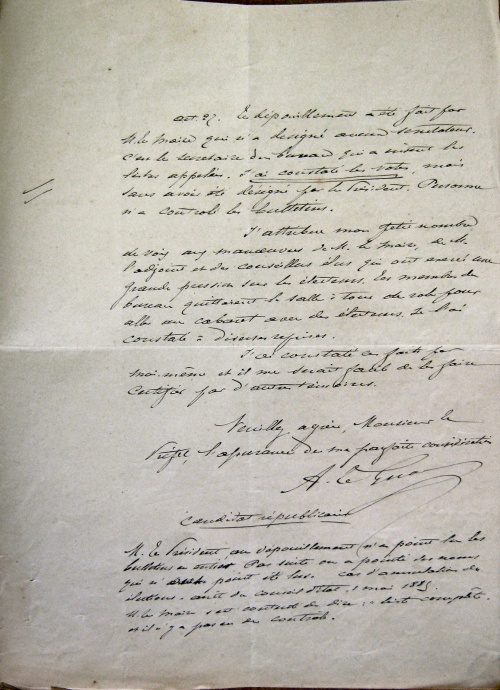 art. 27. Le dépouillement a été fait par
M. le maire qui n'a désigné aucun scrutateur.
c'est le secrétaire du bureau qui a suivi les
listes appelées. J'ai constaté les votes, mais
sans avoir été désigné par le Président. Personne
n'a controlé les bulletins.
J'attribue mon petit nombre
de voix aux manœuvres de M. le maire, de M.
l'adjoint et des conseillers élus qui ont exercé une
grande pression sur les électeurs. Les membres du
bureau quittaient la salle à tour de role pour
aller au cabaret avec des électeurs. Je l'ai
constaté à diverses reprises.
J'ai constaté ces faits par
moi-même et il me serait facile de les faire
certifier par d'autres témoins.
Veuillez agréer, Monsieur le
Préfet, l'assurance de ma parfaite considération
A. Le
candidat républicain
M. le Président au dépouillement n'a point lu les
bulletins en entier Par suite on a pointé des noms
qui n' point été lus. cas d'annulation des
élections. arrêt du conseil d'Etat
M. le maire s'est contenté de dire : liste complète
et il n'y a pas eu de controle.